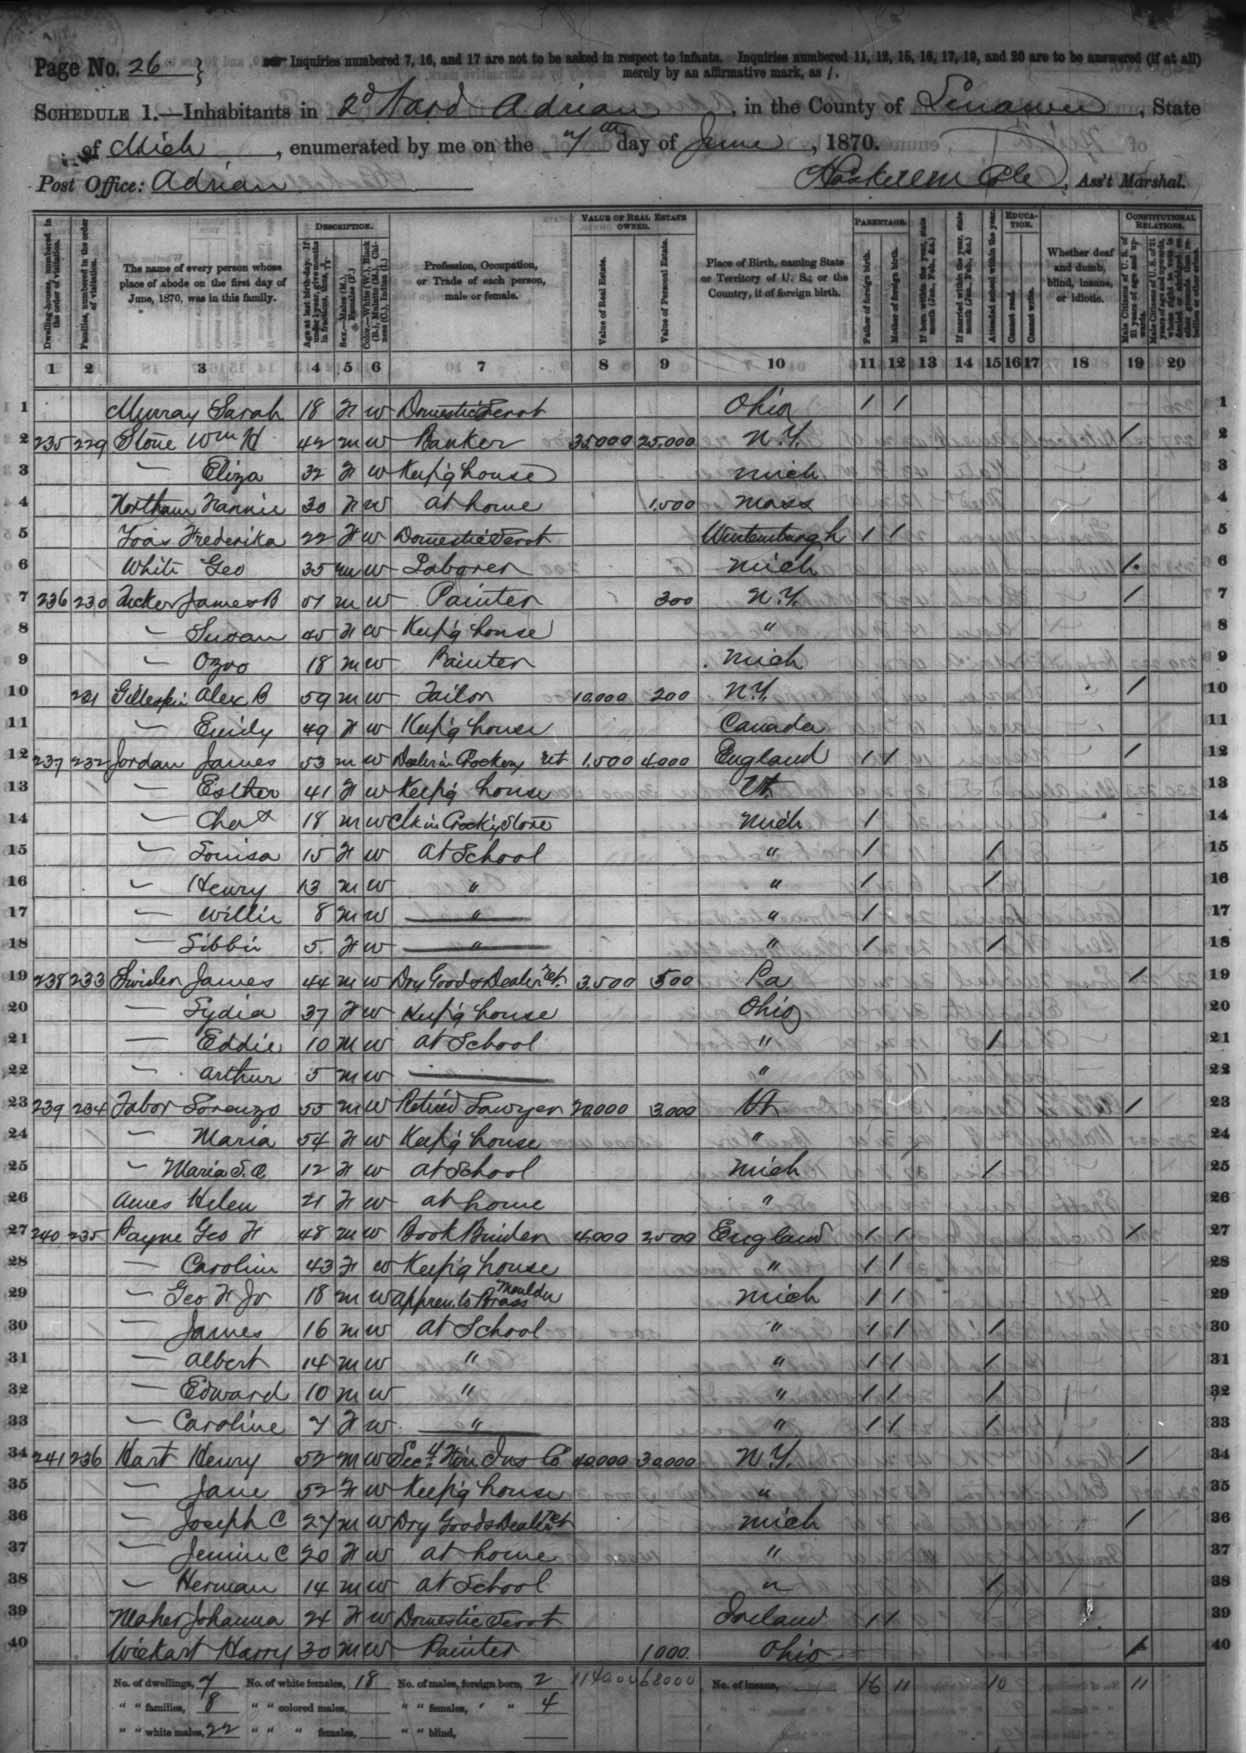 Page No. 26
Inquiries numbered 7, 16, and 17 are not to be asked in respect to infants. Inquiries numbered 11, 12, 15, 16, 17, 19, and 20 are to be answered (if at all)
merely by an affirmative mark, as /.
SCHEDULE 1.—Inhabitants in 2d Ward Adrian, in the County of Lenawee, State
of Mich, enumerated by me on the 7th day of June, 1870.
Post Office: Adrian
Ass't Marshal.
DESCRIPTION. VALUE OF REAL ESTATE OWNED. PARENTAGE. EDUCATION. CONSTITUTIONAL RELATIONS.
Dwelling-houses, numbered in the order of visitation.
Families, numbered in the order of visitation.
The name of every person whose place of abode on the first day of June, 1870, was in this family.
Age at last birth-day. If under 1 year, give months in fractions, thus, 3/12
Sex.—Males (M.), Females (F.)
Color.—White (W.), Black (B.), Mulatto (M.), Chinese (C.), Indian (I.)
Profession, Occupation, or Trade of each person, male or female.
Value of Real Estate.
Value of Personal Estate.
Place of Birth, naming State or Territory of U. S.; or the Country, if of foreign birth.
Father of foreign birth.
Mother of foreign birth.
If born within the year, state month (Jan., Feb., &c.)
If married within the year, state month (Jan., Feb., &c.)
Attended school within the year.
Cannot read.
Cannot write.
Whether deaf and dumb, blind, insane, or idiotic.
Male Citizens of U. S. of 21 years of age and upwards.
1 2 3 4 5 6 7 8 9 10 11 12 13 14 15 16 17 18 19 20
1 Murray Sarah 18 F W Domestic Servt Ohio / / 1
2 235 229 Stone Wm H 42 M W Banker 35000 25,000 N.Y. / 2
3 — Eliza 32 F W Keep'g house Mich 3
4 Northam Nannie 30 F W at home 1,500 Mass 4
5 Frederika 22 F W Domestic Servt Wurtemburgh / / 5
6 White Geo 35 M W Laborer Mich / 6
7 236 230 Tucker James B 51 M W Painter 300 N.Y. / 7
8 — Susan 45 F W Keep'g house " 8
9 — Ozro 18 M W Painter Mich 9
10 231 Gillespie Alex B 59 M W Tailor 10,000 200 N.Y. / 10
11 — Emily 49 F W Keep'g house Canada 11
12 237 232 Jordan James 53 M W Dealer in Crockery ret 1,500 4000 England / / / 12
13 — Esther 41 F W Keep'g house Vt. 13
14 — Chas 18 M W Clk in Crock'y Store Mich / 14
15 — Louisa 15 F W at School " / / 15
16 — Henry 13 M W " " / / 16
17 — Willie 8 M W " " / 17
18 — Libbie 5 F W " " / / 18
19 238 233 James 44 M W Dry Goods Dealer ret. 3,500 500 Pa / 19
20 — Lydia 37 F W Keep'g house Ohio 20
21 — Eddie 10 M W at School " / 21
22 — Arthur 5 M W — " 22
23 239 234 Tabor Lorenzo 55 M W Retired Lawyer 20000 3,000 Vt / 23
24 — Maria 54 F W Keep'g house " 24
25 — Maria 12 F W at School Mich / 25
26 Ames Helen 21 F W at home " 26
27 240 235 Payne Geo F 48 M W Book Binder 4,000 2500 England / / / 27
28 — Carolin 43 F W Keep'g house " / / 28
29 — Geo F Jr 18 M W appren. to Brass Moulder Mich / / 29
30 — James 16 M W at School " / / / 30
31 — Albert 14 M W " " / / / 31
32 — Edward 10 M W " " / / / 32
33 — Caroline 7 F W " " / / / 33
34 241 236 Hart Henry 52 M W Secy Fire Ins Co 40,000 30,000 N.Y. / 34
35 — Jane 52 F W Keep'g house " 35
36 — Joseph C 27 M W Dry Goods Dealer ret Mich / 36
37 — Jennie C 20 F W at home " 37
38 — Herman 14 M W at School " / 38
39 Maher Johanna 24 F W Domestic Servt Ireland / / 39
40 Wickart Harry 30 M W Painter 1000. Ohio / 40
No. of dwellings, 7 No. of white females, 18 No. of males, foreign born, 2 114000 68000 No. of insane, 16 11 10 11
" " families, 8 " " colored males, " " females, " " 4
" " white males, 22 " " " females, " " blind,